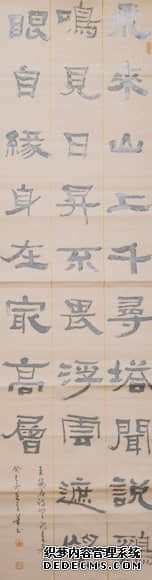 飛來山上千尋塔聞說鷄
鳴見日昇不畏浮雲遮望
眼自緣身在最高層
织梦内容管理系统
DEDECMS.COM